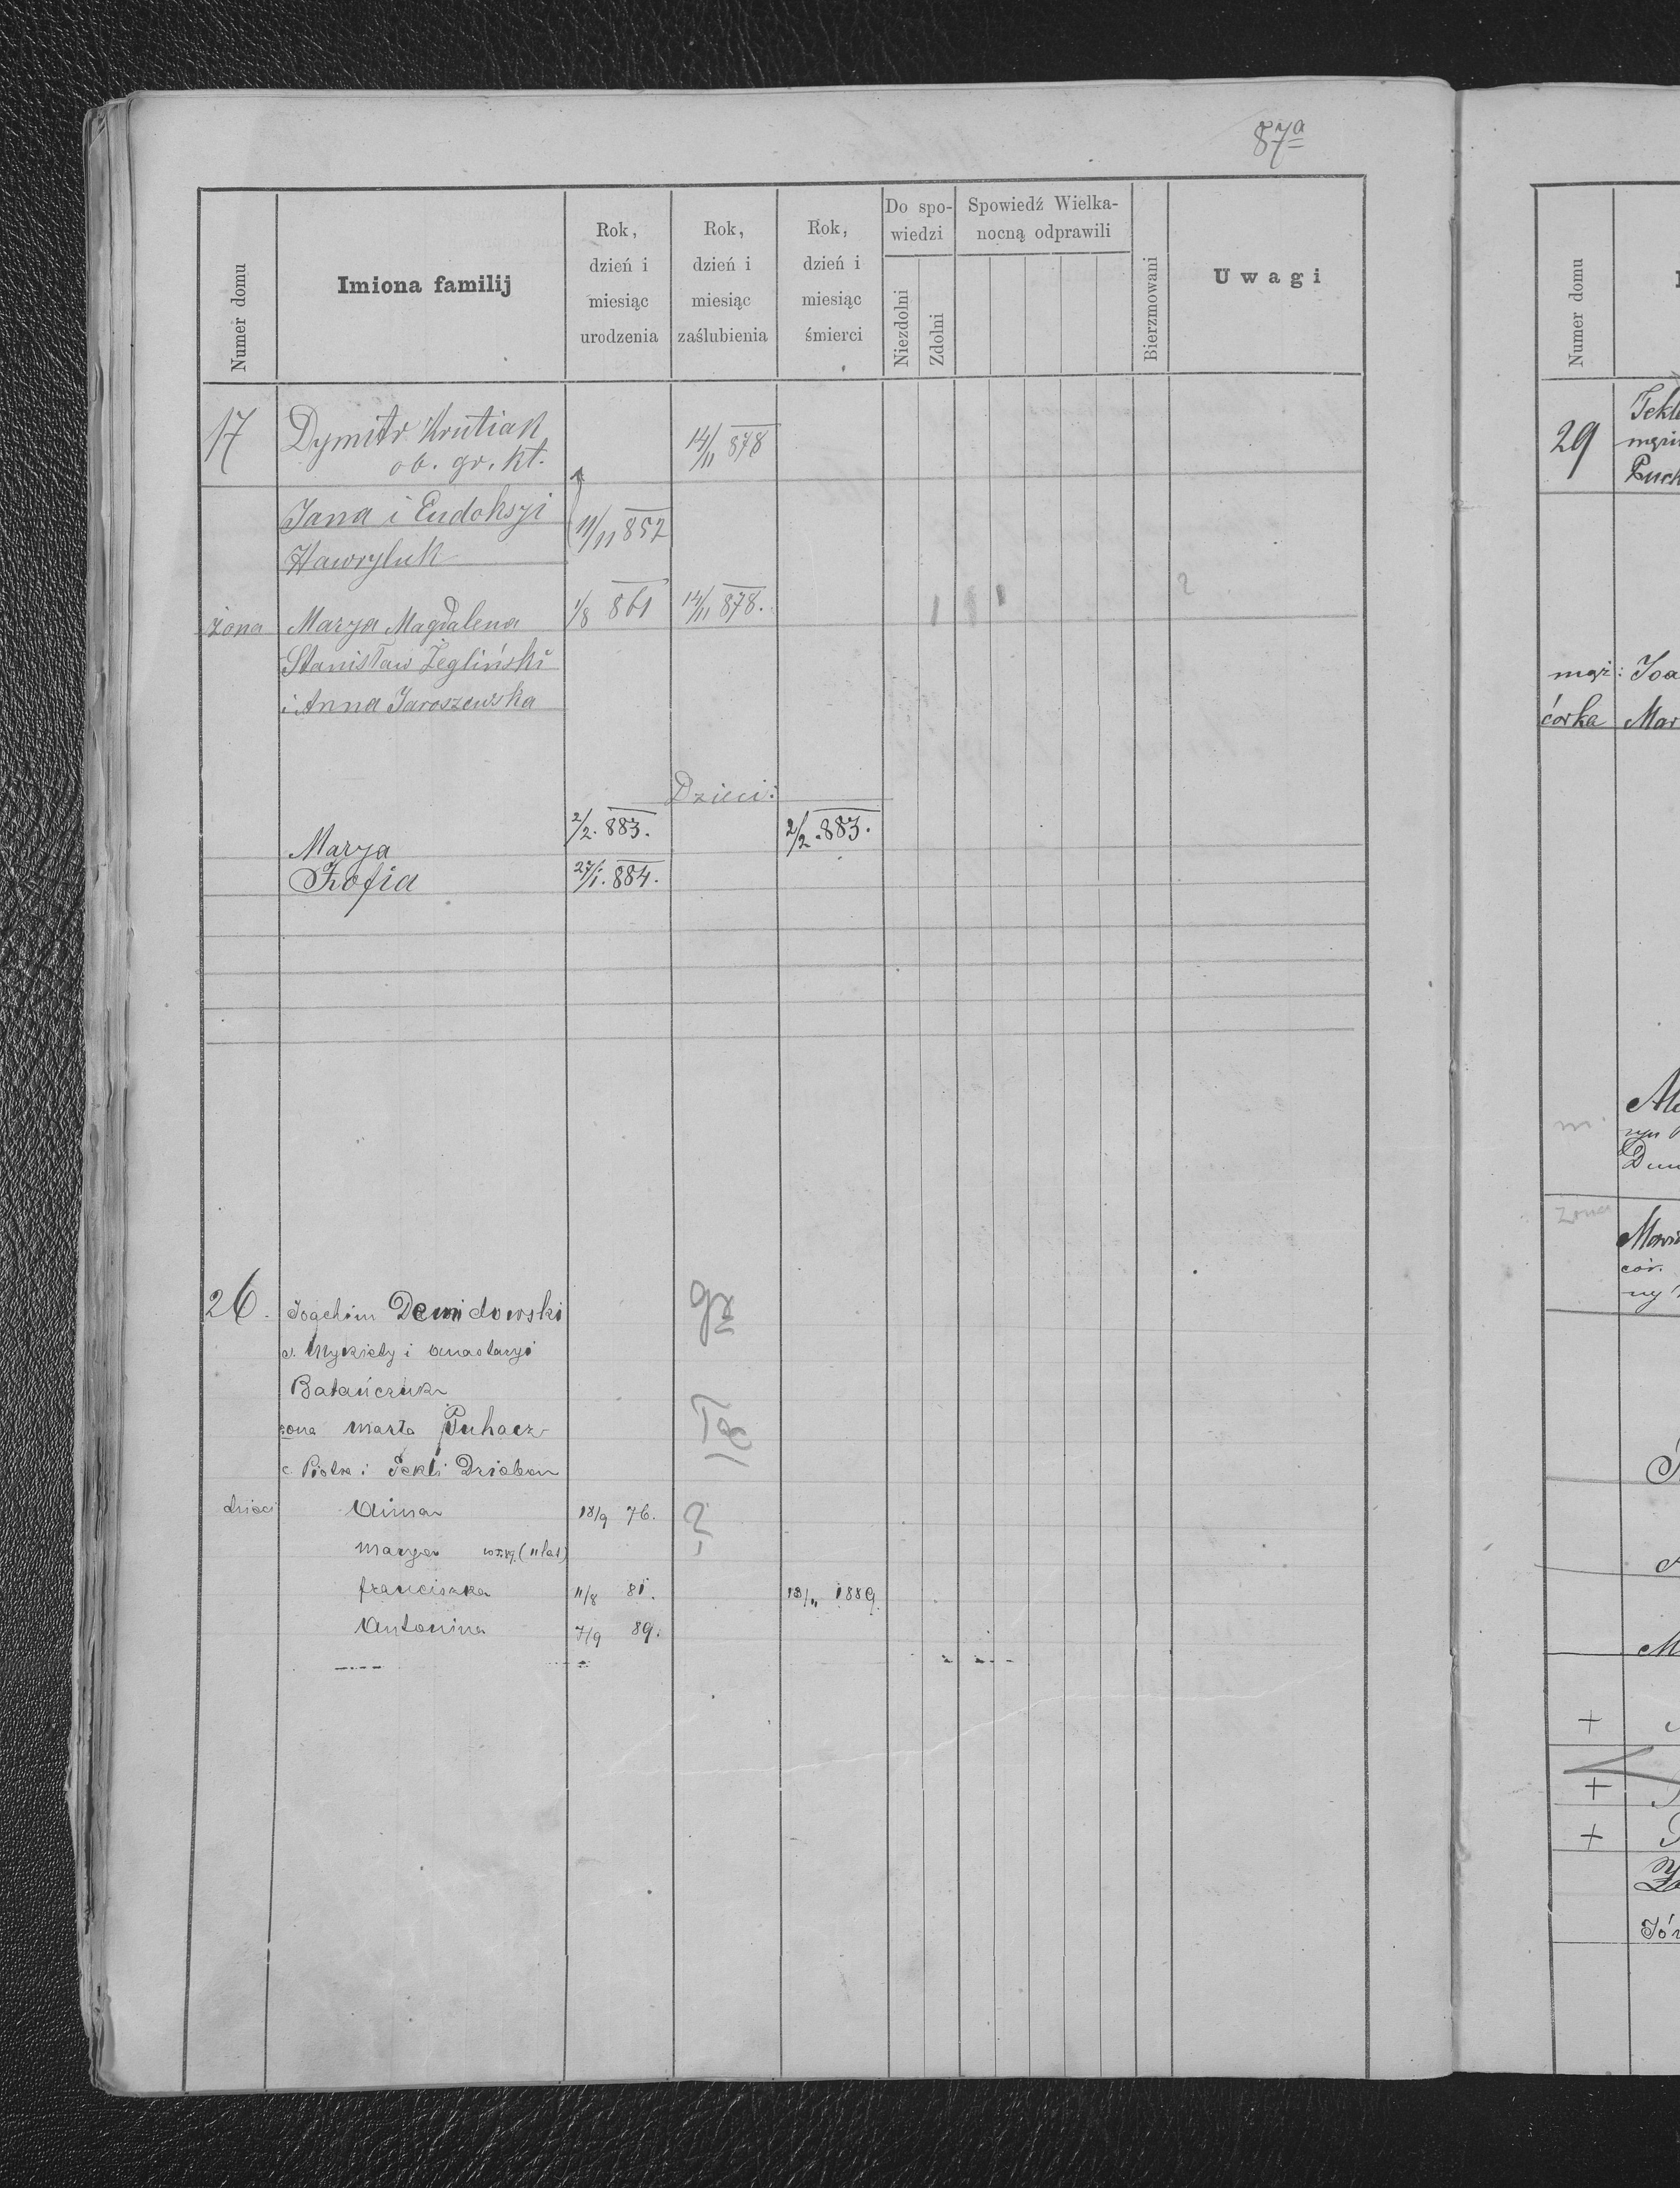 87a
Numer domu
Imiona familij
Rok, dzień i miesiąc urodzenia
Rok, dzień i miesiąc zaślubienia
Rok, dzień i miesiąc śmierci
Do spo-
wiedzi
Niezdolni
Zdolni
Spowiedź Wielka-
nocną odprawili
Bierzmowani
Uwagi
17 Dymitr Krutiak 14/11 878
ob. gr. kt.
Jana i Eudoksyi 11/11 852
Hawryluk
żona Marya Magdalena 1/8 861 14/11 878. 2
Stanisław Żegliński
i Anna Jaroszewska
Dzieci:
Marya 2/2. 883. 2/2. 883.
Zofia 27/1. 884.
26. Joachim Demidowski gr
s. Mykiety i Anastazyi
Batańczuk
żona Marta Puhacz łac
c. Piotra i Tekli Dziaban
dzieci Anna 18/9 76. ?
Marya (11 lat)
franciszka 11/8 81. 13/11 1889.
Antonina 7/9 89.
Numer domu
29
Tekl
Puch
męż: Joa
córka Mar
m.
żona
cór.
+
+
+